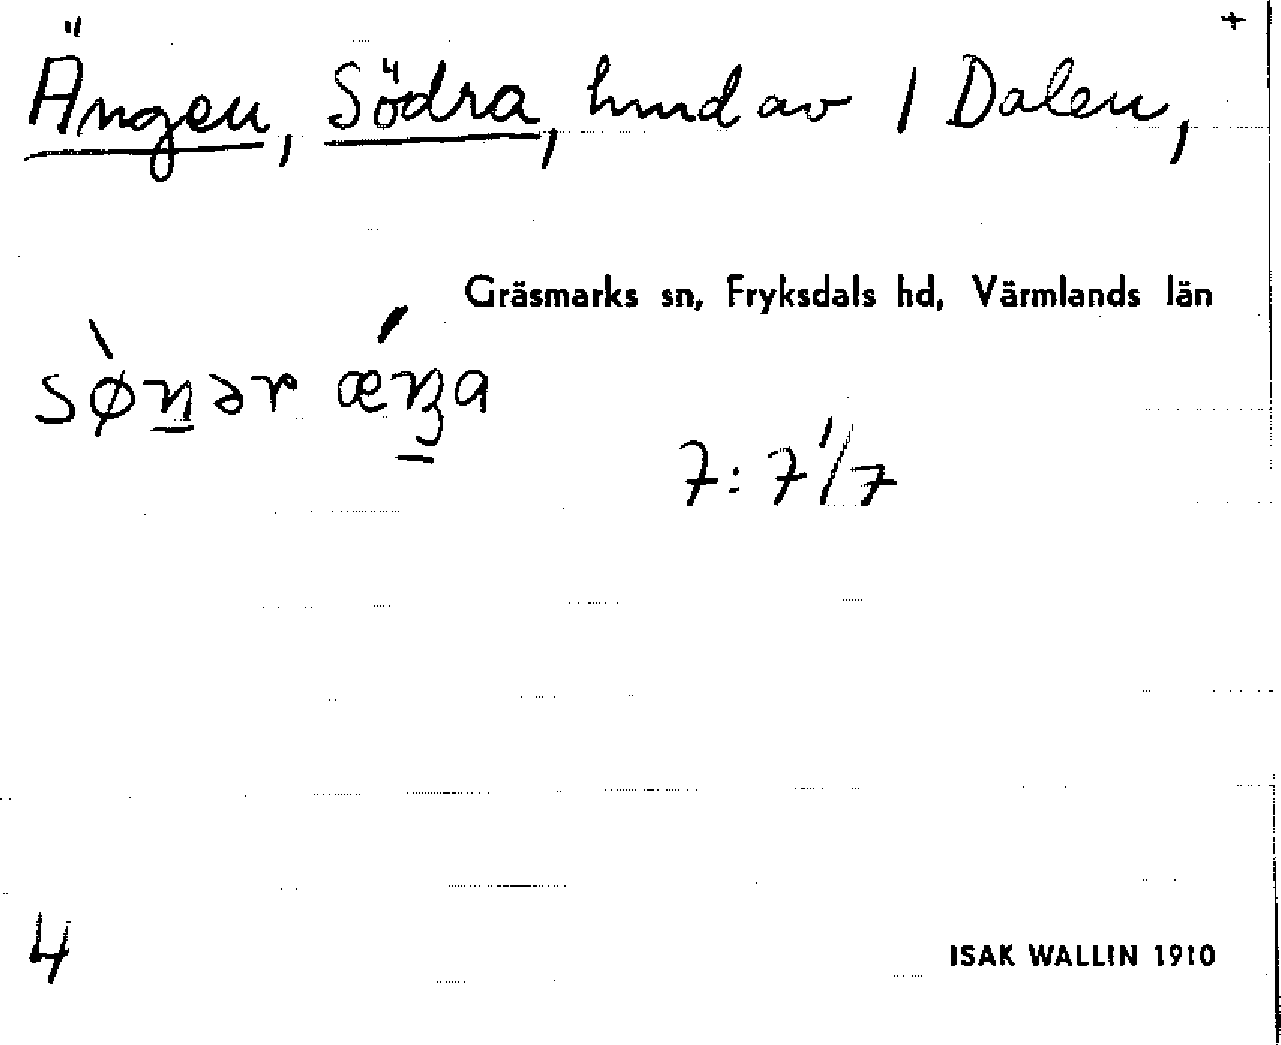 +
Ängen, Södra, hmd av 1 Dalen,
Gräsmarks sn, Fryksdals hd, Värmlands län
7: 7 1/7
4
ISAK WALLIN 1910